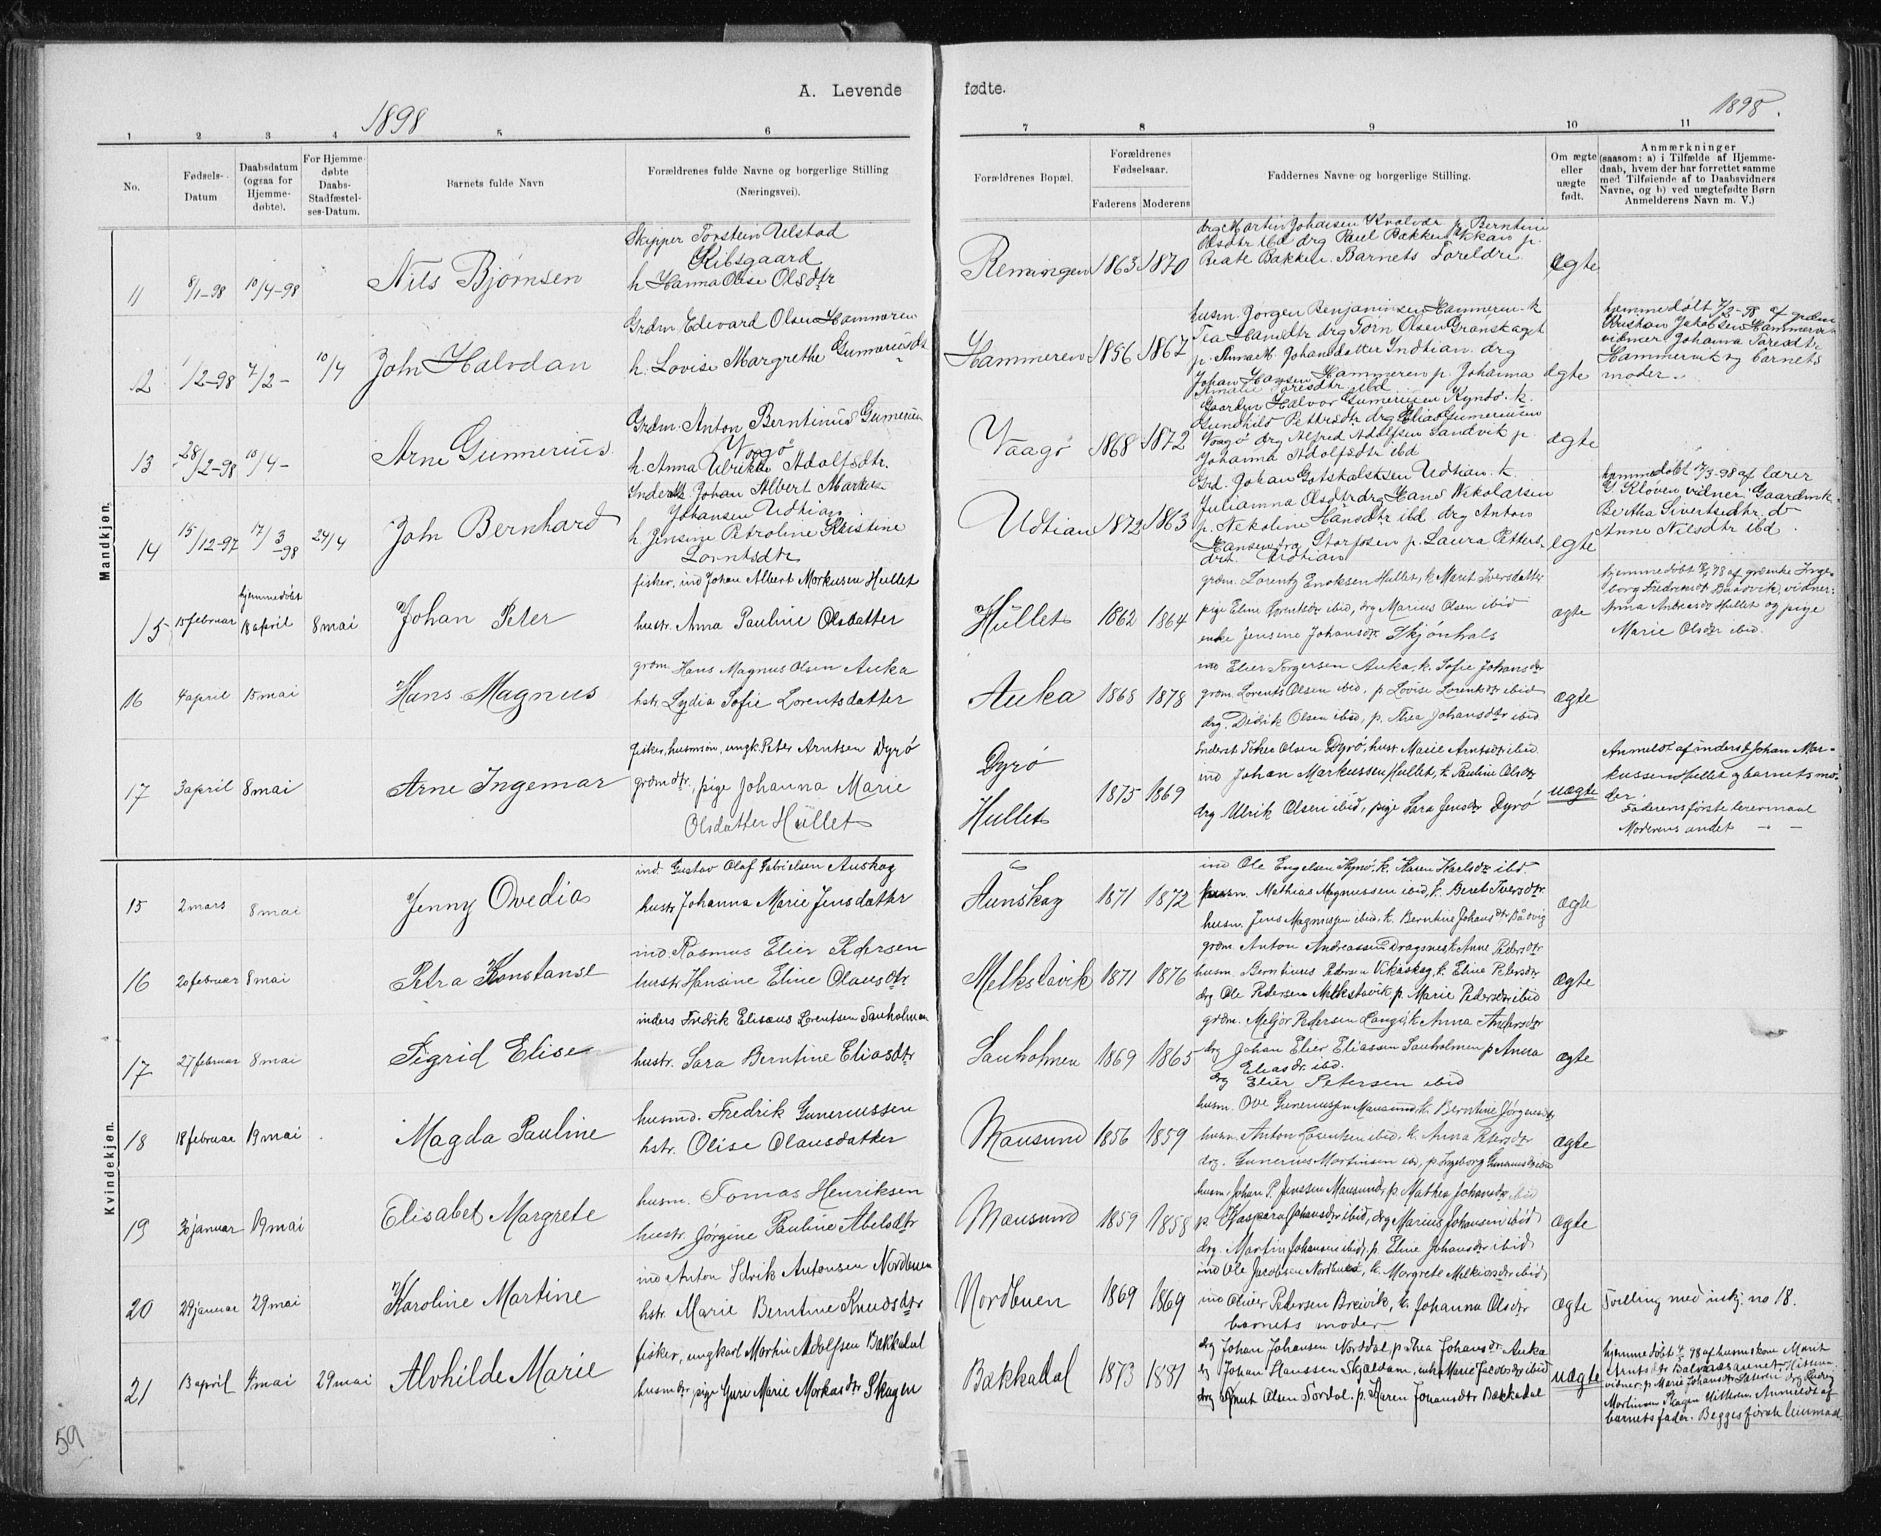 A. Levende
fødte.
1898
1898.
1 2 3 4 5 6
7 8 9 10 11
No.
Fødsels-Datum
Daabsdatum (ogsaa for Hjemme-døbte).
For Hjemme-døbte Daabs-Stadfæstel-ses-Datum.
Barnets fulde Navn
Forældrenes fulde Navne og borgerlige Stilling
(Næringsvei).
Forældrenes Bopæl.
Forældrenes Fødselsaar.
Faderens Moderens
Faddernes Navne og borgerlige Stilling.
Om ægte eller uægte født.
Anmærkninger
(saasom: a) i Tilfælde af Hjemme-
daab, hvem der har forrettet samme
med Tilføiende af to Daabsvidners
Navne, og b) ved uægtefødte Børn
Anmelderens Navn m. V.)
Mandkjøn.
11 8/1-98 10/4-98 Nils Bjørnsen
Skipper Torstein Ulstad
Kibsgaard
h. Hanna Olise Olsdtr
Remingen 1863 1870
drg Martin Johansen Kvalvær p. Berntine
Olsdtr ibd drg Paul Bakken p.
Beate Bakken. Barnets Foreldre
Ægte
12 1/2-98 7/2- 10/4 John Halvdan
Grdm Edevard Olsen Hammeren
h. Lovise Margrethe Gunnariusdt
Hammeren 1856 1867
husm. Jørgen Benjaminsen Hammeren k.
Tea Hansdtr drg Jørn Olsen Granskaget
p. Anna M. Johansdatter Indtian drg
Johan Hansen Hammeren p. Johanna
Amalie Toresdtr ibd
ægte
hjemmedøbt 7/2-98 af grdm
Kristian Jakobsen Hammervik
vidner Johanna Toresdtr
Hammervik og barnets
moder.
13 28/2-98 10/4- Arne Gunnerius
Grdm. Anton Berntinus Gumerisen
Vaagø
h. Anna Ulrikke Adolfsdtr.
Vaagø 1868 1872
Gaardm Halvor Gumeriusen Kynsø. k.
Gunhild Pettersdtr drg Elias Gumeriusen
Vaagø drg Alfred Adolfsen Sandvik p
Johanna Adolfsdtr ibd
ægte
14 15/12-97 17/3-98 24/4 John Bernhard
Inderst. Johan Albert Markus
Johansen Udtian
h. Jensine Petroline Kristine
Lorntsdtr
Udtian 1872 1863
Grd. Johan Gotskalksen Udtian. k.
Julianna Olsdtr drg Hans Nikolaisen
p. Nekoline Hansdtr ibd drg Anton
Hansen Storfosen p. Laura Petters-
dtr. Udtian
ægte
hjemmedøbt 17/3-98 af lærer
G. Kløven vidner. Gaardmk
Beatha Sivertsdtr. &
Anne Nilsdtr ibd
15 15 februar hjemmedøbt 18 april 8 mai Johan Peter
fisker, ind Johan Albert Morkusen Hullet
hustr. Anna Pauline Olsdatter
Hullet 1862 1864
grdm. Lorentz Enoksen Hullet, k. Marit Iversdatter
pige Eline Lorentsdtr ibid, drg Marius Olsen ibid
enke Jensine Johansdtr Skjønhals
ægte
hjemmedøbt 18/4 98 af grdenke Inge-
borg Fredriksdtr Baadvik, vidner:
Anna Andreasdtr Hullet og pige
Marie Olsdtr ibid.
16 4 april 15 mai Hans Magnus
grdm. Hans Magnus Olsen Auka
hstr. Lydia Sofie Lorentsdatter
Auka 1868 1878
ind Elier Torgersen Auka, k. Sofie Johansdtr
grdm. Lorents Olsen ibid, p Lovise Lorentsdtr ibid
drg. Didrik Olsen ibid, p. Thea Johansdtr ibid
ægte
17 3 april 8 mai Arne Ingemar
fisker, husmsøn, ungk. Peter Arntsen Dyrø
grdm dtr., pige Johanna Marie
Olsdatter Hullet
Dyrø
Hullet
1875 1869
Inderst. Olsen Dyrø, hust. Marie Arntsdtr ibid.
ind Johan Markussen Hullet, k. Pauline Olsdtr
drg Ulrik Olsen ibid, pige Sara Jensdtr Dyrø
uægte
Anmeldt af inderst Johan Mar-
kussen Hullet og barnets mo-
der.
Faderens første leiermaal
Moderens andet — " —
Kvindekjøn.
15 2 mars 8 mai Jenny Ovedia
ind Gustav Olaf Gabrielsen Aunskag
hustr Johanna Marie Jensdatter
Aunskag 1871 1872
ind Ole Engelsen Kynø, k. Karen Karlsdtr ibd.
husm. Mathias Magnussen ibid, k. Beret Iversdtr
husm. Jens Magnussen ibid, k. Berntine Johansdtr Bådvig
ægte
16 20 februar 8 mai Petra Konstanse
ind. Rasmus Elier Pedersen
hustr Hansine Eline Olausdtr
Melkstavik 1871 1876
grdm. Anton Andreassen Dragsnes k. Anne Petersdtr
husm. Berntinus Pedersen Vikaskag, k. Eline Petersdtr
drg Ole Pedersen Melkstavik, p. Marie Pedersdtr ibid
ægte
17 27 februar 8 mai Sigrid Elise
inders Fredrik Elisæus Lorentsen Sauholmen
hustr. Sara Berntine Eliasdtr
Sauholmen 1869 1865
grdm. Meljor Pedersen Langø, k Anna Andersdtr
drg Johan Elier Eliassen Sauholmen p Anna
Eliasdtr. ibid.
drg Elier Petersen ibid
ægte
18 18 februar 19 mai Magda Pauline
husmd. Fredrik Guneriussen
hstr. Olise Olausdatter
Mausund 1856 1859
husm. Ove Guneriussen Mausund, k. Berntine Jørgensdtr
husm. Anton Lorentsen ibid, k. Anna Petersdtr
drg. Gunerius Martinsen ibid, p Ingeborg Guneriusdtr ibid
ægte
19 30 januar 19 mai Elisabet Margrete
husm. Tomas Henriksen
hustr. Jørgine Pauline Abelsdtr
Mausund 1859 1858
husm. Johan P. Jenssen Mausund, p. Mathea Johansdtr ibid
p. Kaspara Johansdtr ibid, drg Marius Johansen ibid
drg. Martin Johansen ibid, p. Eline Johansdtr ibid
ægte
20 29 januar 29 mai Karoline Martine
ind Anton Edrik Antonsen Nordbuen
hstr. Marie Berntine Knudsdtr
Nordbuen 1869 1869
ind Ole Jacobsen Nordbuen, k. Margrete Melkiorsdtr ibid
ind Oliver Petersen Breivik, k. Johanna Olsdtr
barnets moder
ægte
Tvilling med indkj. no 18.
21 13 april 1 mai 29 mai Alvhilde Marie
fisker, ungkarl Martin Adolfsen Bakkadal
husmdtr pige Guri Marie Morkusdtr Skagen
Bakkadal 1873 1881
drg Johan Johansen Norddal, p Thea Johansdtr Auka
drg Johan Hanssen Skjaldam, enk Marie Jacobsdtr ibid
drg Knut Olsen Sørdal. p. Karen Johansdtr Bakkadal
uægte
hjemmedøbt 98 af husmskone Marit
Arntsdtr
vidner p. Marie Johansdtr drg
Martinsen Skagen Hitteren. Anmeldt af
barnets fader. Begges første leiermaal
59